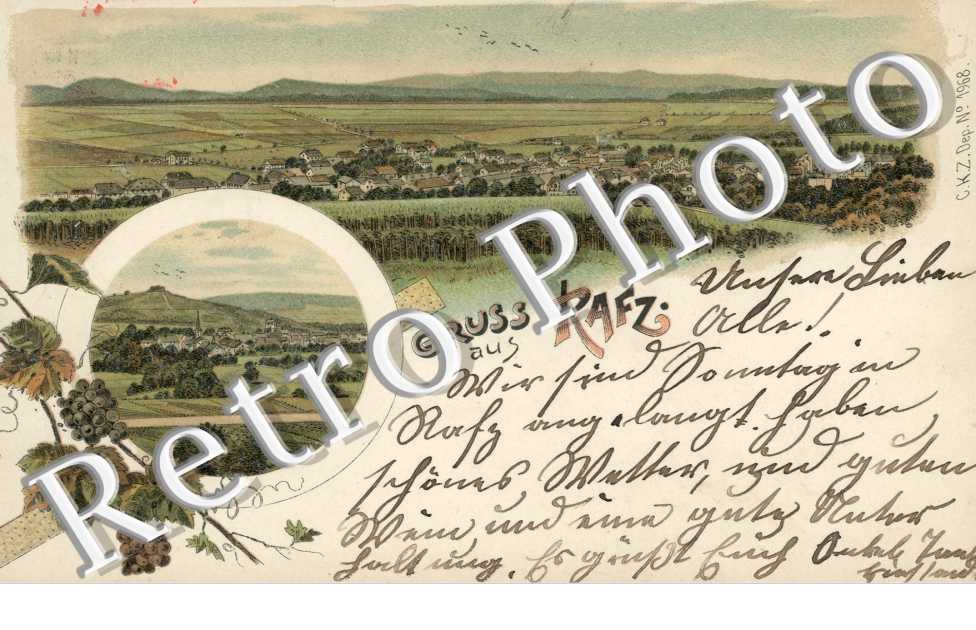 C.K.Z. Dep. Nº 1968.
Retro Photo
GRUSS
aus
RAFZ.
Unsere Lieben
Alle!
Wir sind Sonntag in
Rafz angelangt. haben
schönes Wetter, und guten
Wein und eine gute Unter
haltung. Es grüßt Euch Onkel